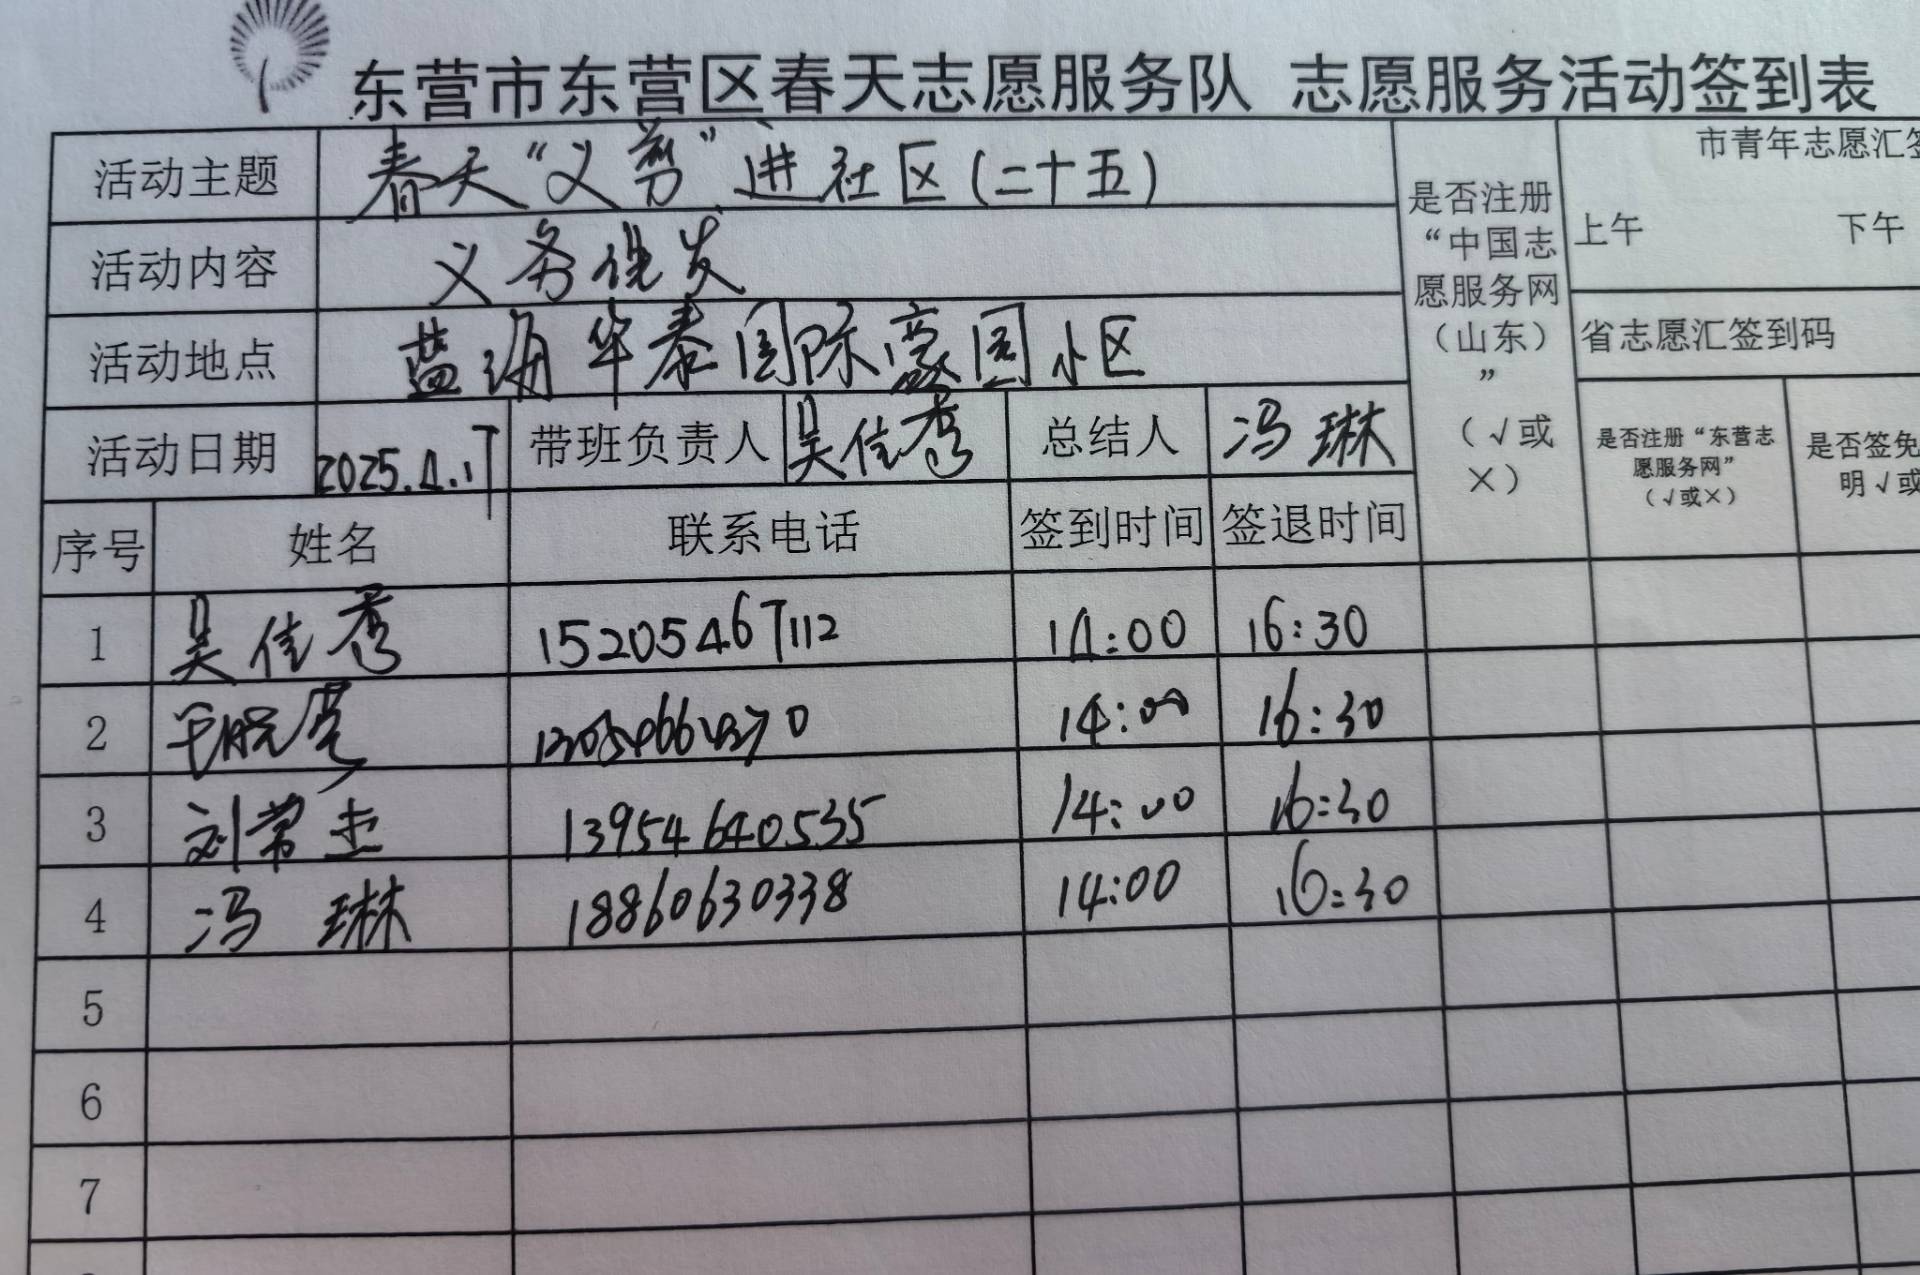 东营市东营区春天志愿服务队 志愿服务活动签到表
活动主题 春天“义剪”进社区(二十五)
活动内容 义务理发
活动地点 蓝海华泰国际豪园小区
活动日期 2025.4.17 带班负责人 吴佳秀 总结人 冯琳
是否注册
“中国志
愿服务网
（山东）
”
（√或
×）
市青年志愿汇签
上午 下午
省志愿汇签到码
是否注册“东营志
愿服务网”
（√或×）
是否签免
明√或
序号 姓名 联系电话 签到时间 签退时间
1 吴佳秀 15205467112 14:00 16:30
2 14:00 16:30
3 刘常杰 13954640535 14:00 16:30
4 冯琳 18860630338 14:00 16:30
5
6
7